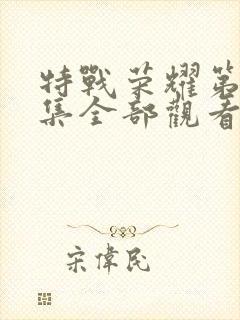 特戰荣耀第
集全部觀看
宋偉民